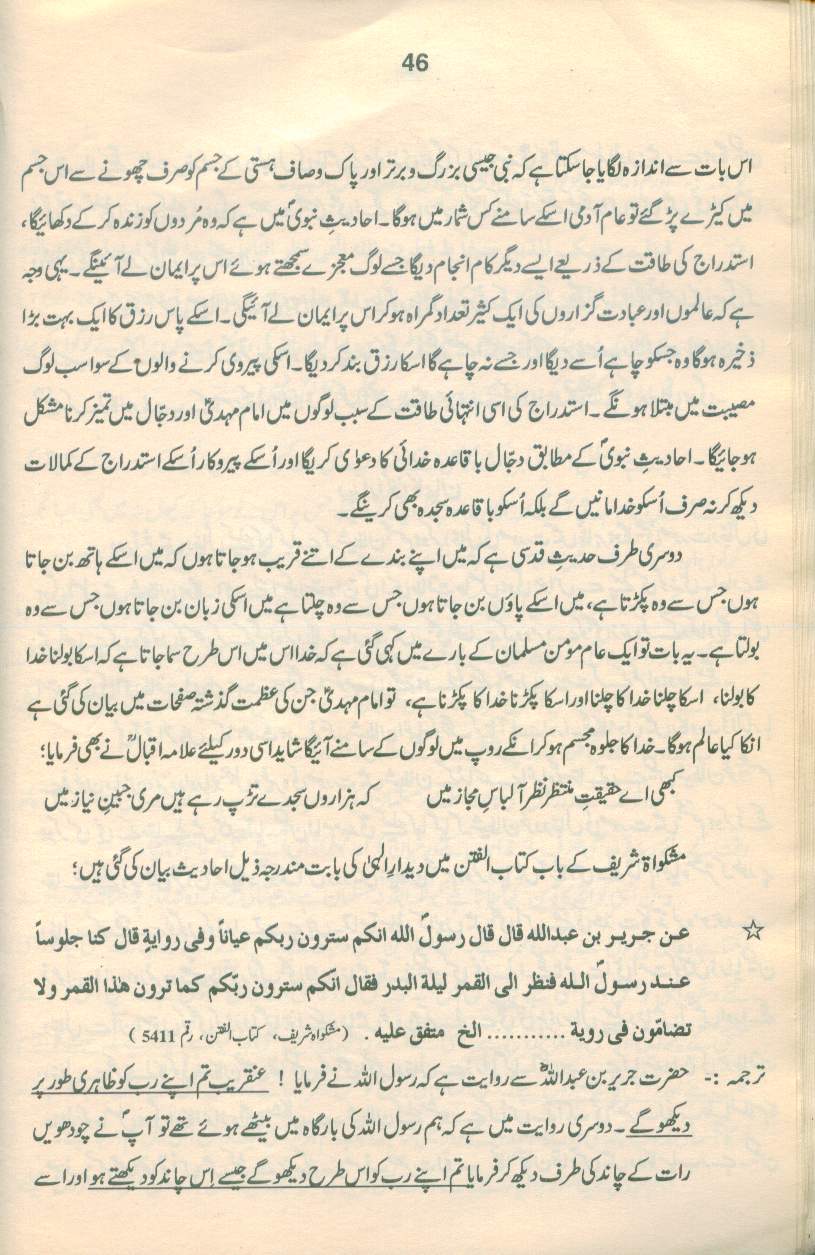 46
اس بات سے اندازہ لگایا جاسکتا ہے کہ نبی جیسی بزرگ و برتر اور پاک و صاف ہستی کے جسم کو صرف چھونے سے اس جسم
میں کیڑے پڑ گئے تو عام آدمی اسکے سامنے کس شمار میں ہوگا۔ احادیثِ نبویؐ میں ہے کہ وہ مُردوں کو زندہ کر کے دکھائیگا،
استدراج کی طاقت کے ذریعے ایسے دیگر کام انجام دیگا جسے لوگ معجزے سمجھتے ہوئے اس پر ایمان لے آئینگے۔ یہی وجہ
ہے کہ عالموں اور عبادت گزاروں کی ایک کثیر تعداد گمراہ ہوکر اس پر ایمان لے آئیگی۔ اسکے پاس رزق کا ایک بہت بڑا
ذخیرہ ہوگا وہ جسکو چاہے اُسے دیگا اور جسے نہ چاہے گا اسکا رزق بند کر دیگا۔ اسکی پیروی کرنے والوں کے سوا سب لوگ
مصیبت میں مبتلا ہونگے۔ استدراج کی اسی انتہائی طاقت کے سبب لوگوں میں امام مہدیؑ اور دجّال میں تمیز کرنا مشکل
ہو جائیگا۔ احادیثِ نبویؐ کے مطابق دجّال باقاعدہ خدائی کا دعوٰی کریگا اور اُسکے پیروکار اُسکے استدراج کے کمالات
دیکھ کر نہ صرف اُسکو خدا مانیں گے بلکہ اُسکو باقاعدہ سجدہ بھی کرینگے۔
دوسری طرف حدیثِ قدسی ہے کہ میں اپنے بندے کے اتنے قریب ہو جاتا ہوں کہ میں اسکے ہاتھ بن جاتا
ہوں جس سے وہ پکڑتا ہے، میں اسکے پاؤں بن جاتا ہوں جس سے وہ چلتا ہے میں اسکی زبان بن جاتا ہوں جس سے وہ
بولتا ہے۔ یہ بات تو ایک عام مومن مسلمان کے بارے میں کہی گئی ہے کہ خدا اس میں اس طرح سما جاتا ہے کہ اسکا بولنا خدا
کا بولنا، اسکا چلنا خدا کا چلنا اور اسکا پکڑنا خدا کا پکڑنا ہے، تو امام مہدیؑ جن کی عظمت گذشتہ صفحات میں بیان کی گئی ہے
انکا کیا عالم ہوگا۔ خدا کا جلوہ مجسم ہوکر انکے روپ میں لوگوں کے سامنے آئیگا شاید اسی دور کیلئے علامہ اقبالؒ نے بھی فرمایا؛
کبھی اے حقیقتِ منتظر نظر آ لباسِ مجاز میں کہ ہزاروں سجدے تڑپ رہے ہیں مری جبینِ نیاز میں
مشکواۃ شریف کے باب کتاب الفتن میں دیدارِ الٰہی کی بابت مندرجہ ذیل احادیث بیان کی گئی ہیں؛
☆ عن جریر بن عبدالله قال قال رسولؐ الله انکم سترون ربکم عیاناً وفی روایةٍ قال کنا جلوساً
عند رسولؐ الله فنظر الی القمر لیلة البدر فقال انکم سترون ربّکم کما ترون هٰذا القمر ولا
تضامّون فی رویة ........... الخ متفق علیه . (مشکواہ شریف، کتاب الفتن، رقم 5411 )
ترجمہ :- حضرت جریر بن عبداللہؓ سے روایت ہے کہ رسول اللہ نے فرمایا ! عنقریب تم اپنے رب کو ظاہری طور پر
دیکھو گے۔ دوسری روایت میں ہے کہ ہم رسول اللہ کی بارگاہ میں بیٹھے ہوئے تھے تو آپؐ نے چودھویں
رات کے چاند کی طرف دیکھ کر فرمایا تم اپنے رب کو اس طرح دیکھو گے جیسے اِس چاند کو دیکھتے ہو اور اسے